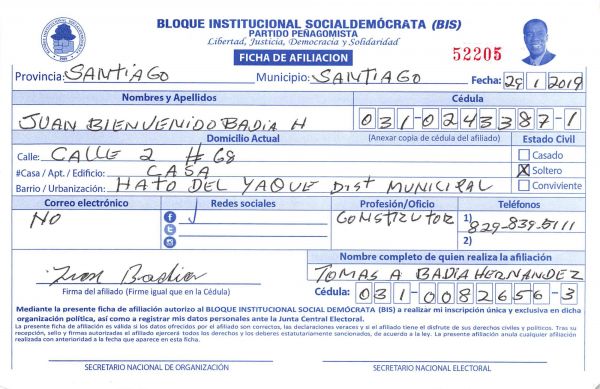 BLOQUE INSTITUCIONAL SOCIALDEMÓCRATA (BIS)
PARTIDO PEÑAGOMISTA
Libertad, Justicia, Democracia y Solidaridad
FICHA DE AFILIACION
52205
Provincia: SANTIAGO Municipio: SANTIAGO Fecha: 29 1 2019
Nombres y Apellidos Cédula
JUAN BIENVENIDO BADIA H 031-0243387-1
Domicilio Actual (Anexar copia de cédula del afiliado) Estado Civil
Calle: CALLE 2 # 68 Casado
#Casa / Apt. / Edificio: CASA X Soltero
Barrio / Urbanización: HATO DEL YAQUE Dist MUNICIPAL Conviviente
Correo electrónico Redes sociales Profesión/Oficio Teléfonos
NO CONSTRUTOR 1) 829-839-5111
2)
Nombre completo de quien realiza la afiliación
Juan Badia TOMAS A BADIA HERNANDEZ
Firma del afiliado (Firme igual que en la Cédula) Cédula: 031-0082656-3
Mediante la presente ficha de afiliación autorizo al BLOQUE INSTITUCIONAL SOCIAL DEMÓCRATA (BIS) a realizar mi inscripción única y exclusiva en dicha
organización política, así como a registrar mis datos personales ante la Junta Central Electoral.
La presente ficha de afiliación es válida si los datos ofrecidos por el afiliado son correctos, las declaraciones veraces y si el afiliado tiene el disfrute de sus derechos civiles y políticos. Tras su
recepción, sello y firmas autorizadas el afiliado ejercerá todos los derechos y los deberes estatutariamente sancionados, de acuerdo a la ley. La presente afiliación anula cualquier afiliación
realizada con anterioridad a la fecha que aparece en esta ficha.
SECRETARIO NACIONAL DE ORGANIZACIÓN SECRETARIO NACIONAL ELECTORAL